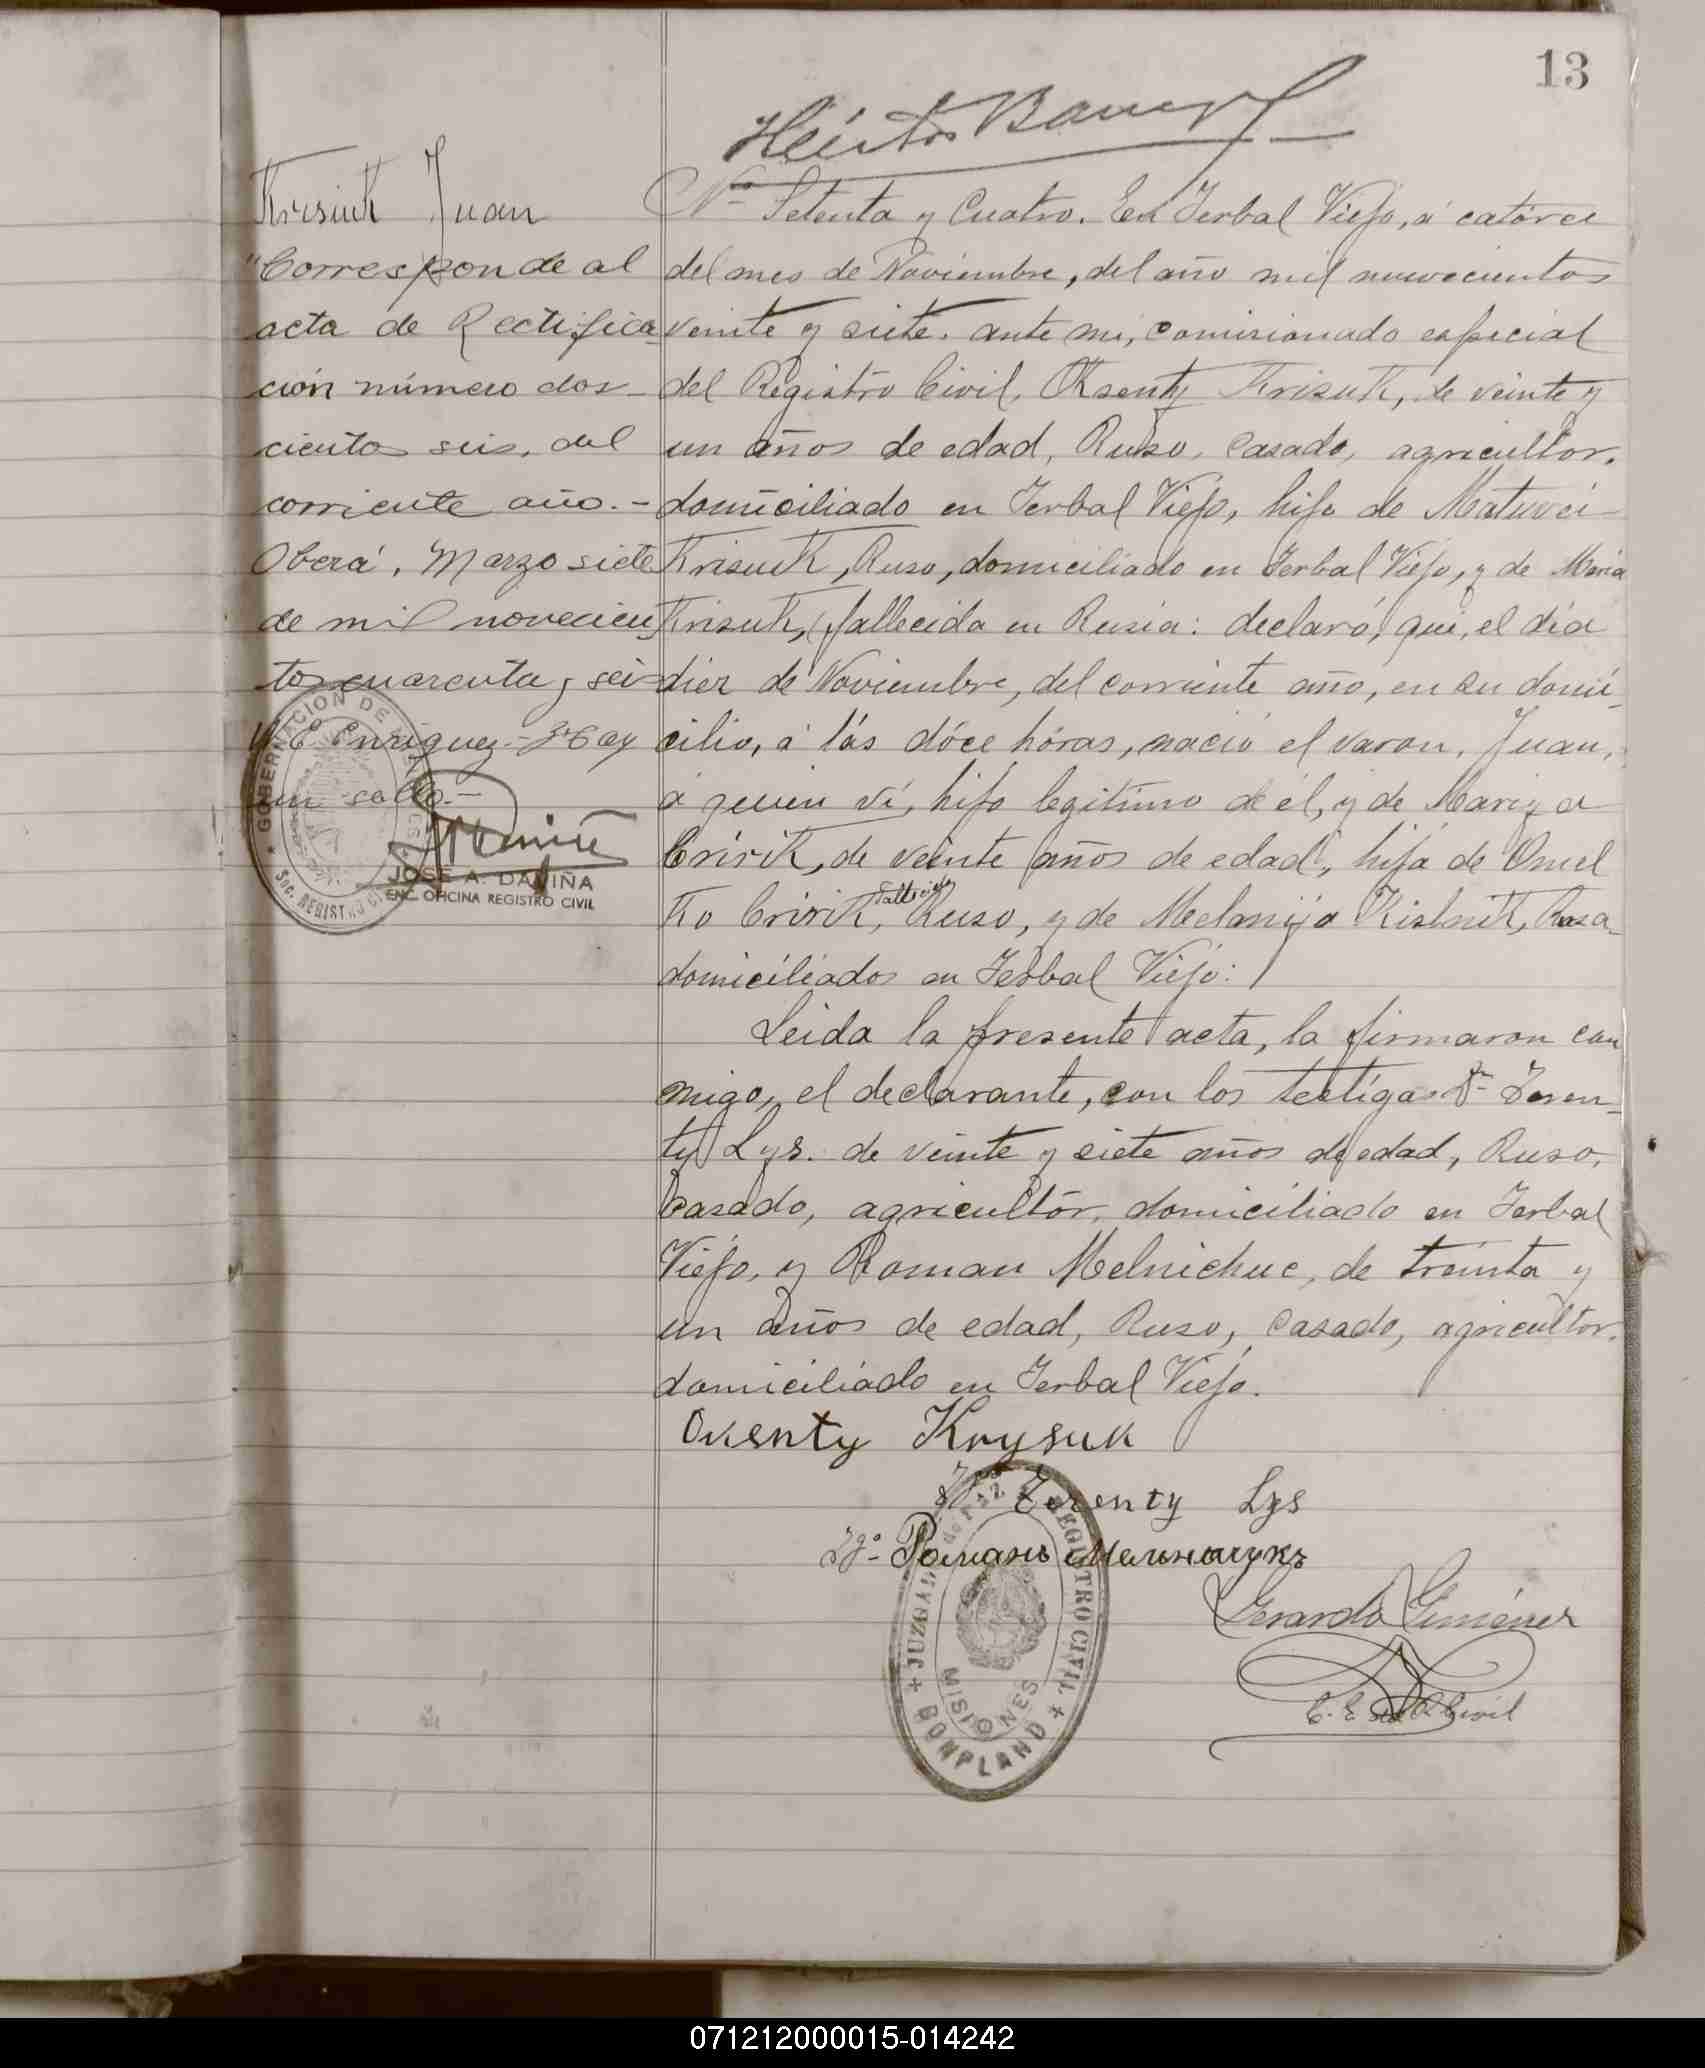 13
Héctor
Krisiuk Juan
"Corresponde al
acta de Rectifica
ción número dos-
cientos seis, del
corriente año.-
Oberá, Marzo siete
de mil novecien
tos cuarenta y seis
E. Enriquez.- Hay
un sello.-
GOBERNACION DE MISIONES
Sec. REGISTRO CIVIL
JOSE A. DAVIÑA
ENC. OFICINA REGISTRO CIVIL
Nº Setenta y Cuatro. En Yerbal Viejo, á catórce
del mes de Noviembre, del año mil novecientos
veinte y siete. ante mi, comisionado especial
del Registro Civil, Oksenty Krisuk, de veinte y
un años de edad, Ruso, Casado, agricultor,
domiciliado en Yerbal Viejo, hijo de Matuvei
Krisuk, Ruso, domiciliado en Yerbal Viejo, y de Maria
Krisuk, fallecida en Rusia: declaró, que, el día
diez de Noviembre, del corriente año, en su domi-
cilio, á lás dóce hóras, nació el varon, Juan,
á quien ví, hijo legitimo de él, y de Mariya
Cririk, de veinte años de edad, hija de Omel
Ko Cririk, fallecido, Ruso, y de Melanija Kislnik, Rusa-
domiciliados en Yerbal Viejo:
Leida la presente acta, la firmaron con
migo, el declarante, con los testigos Dn Teren-
ty Lys. de veinte y siete años de edad, Ruso,
Casado, agricultór, domiciliado en Yerbal
Viejo, y Roman Melnichuc, de treinta y
un años de edad, Ruso, Casado, agricultor,
domiciliado en Yerbal Viejo.
Oksenty Krysuk
Tgº Terenty Lys
Tgº- Романъ Мельничукъ
Gerardo Giménez
C. E. del R. Civil
JUZGADO de PAZ Y REGISTRO CIVIL
MISIONES
BONPLAND
071212000015-014242